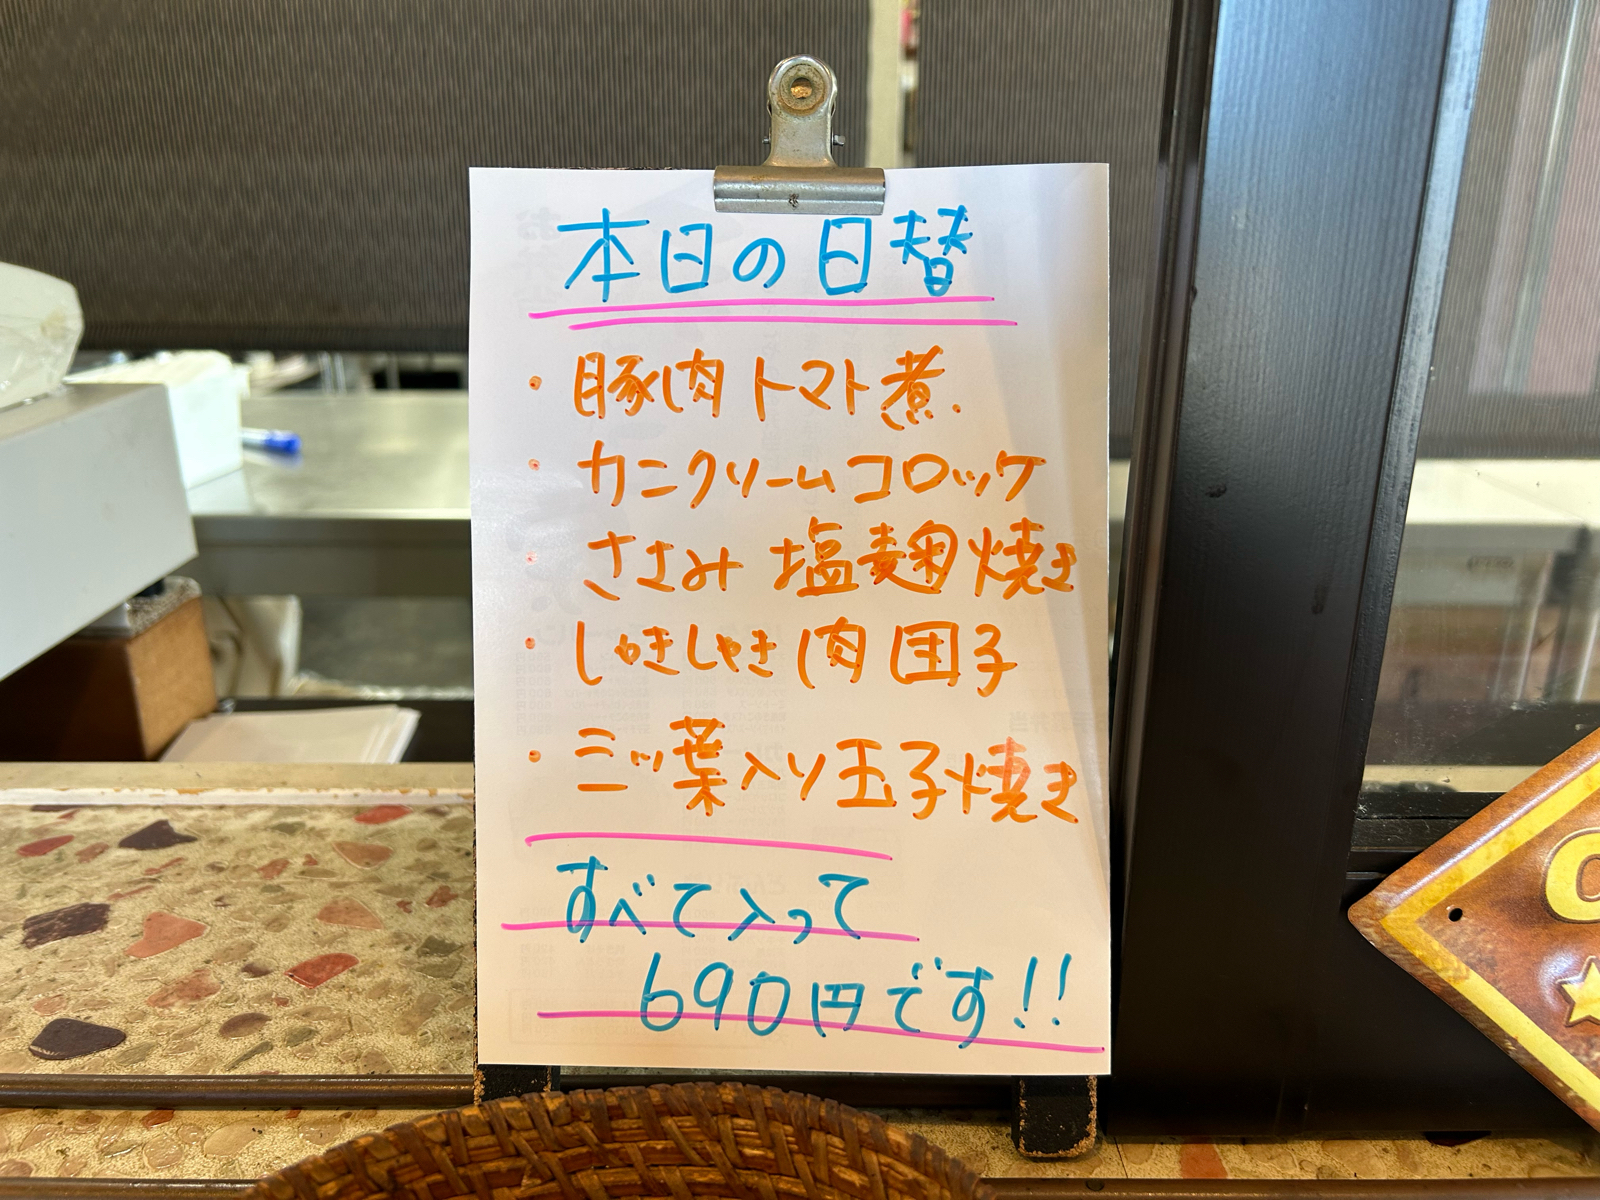 本日の日替
・豚肉トマト煮.
・カニクリームコロッケ
・ささみ 塩麹焼き
・しゃきしゃき肉団子
・三ッ葉入り玉子焼き
すべて入って
690円です!!